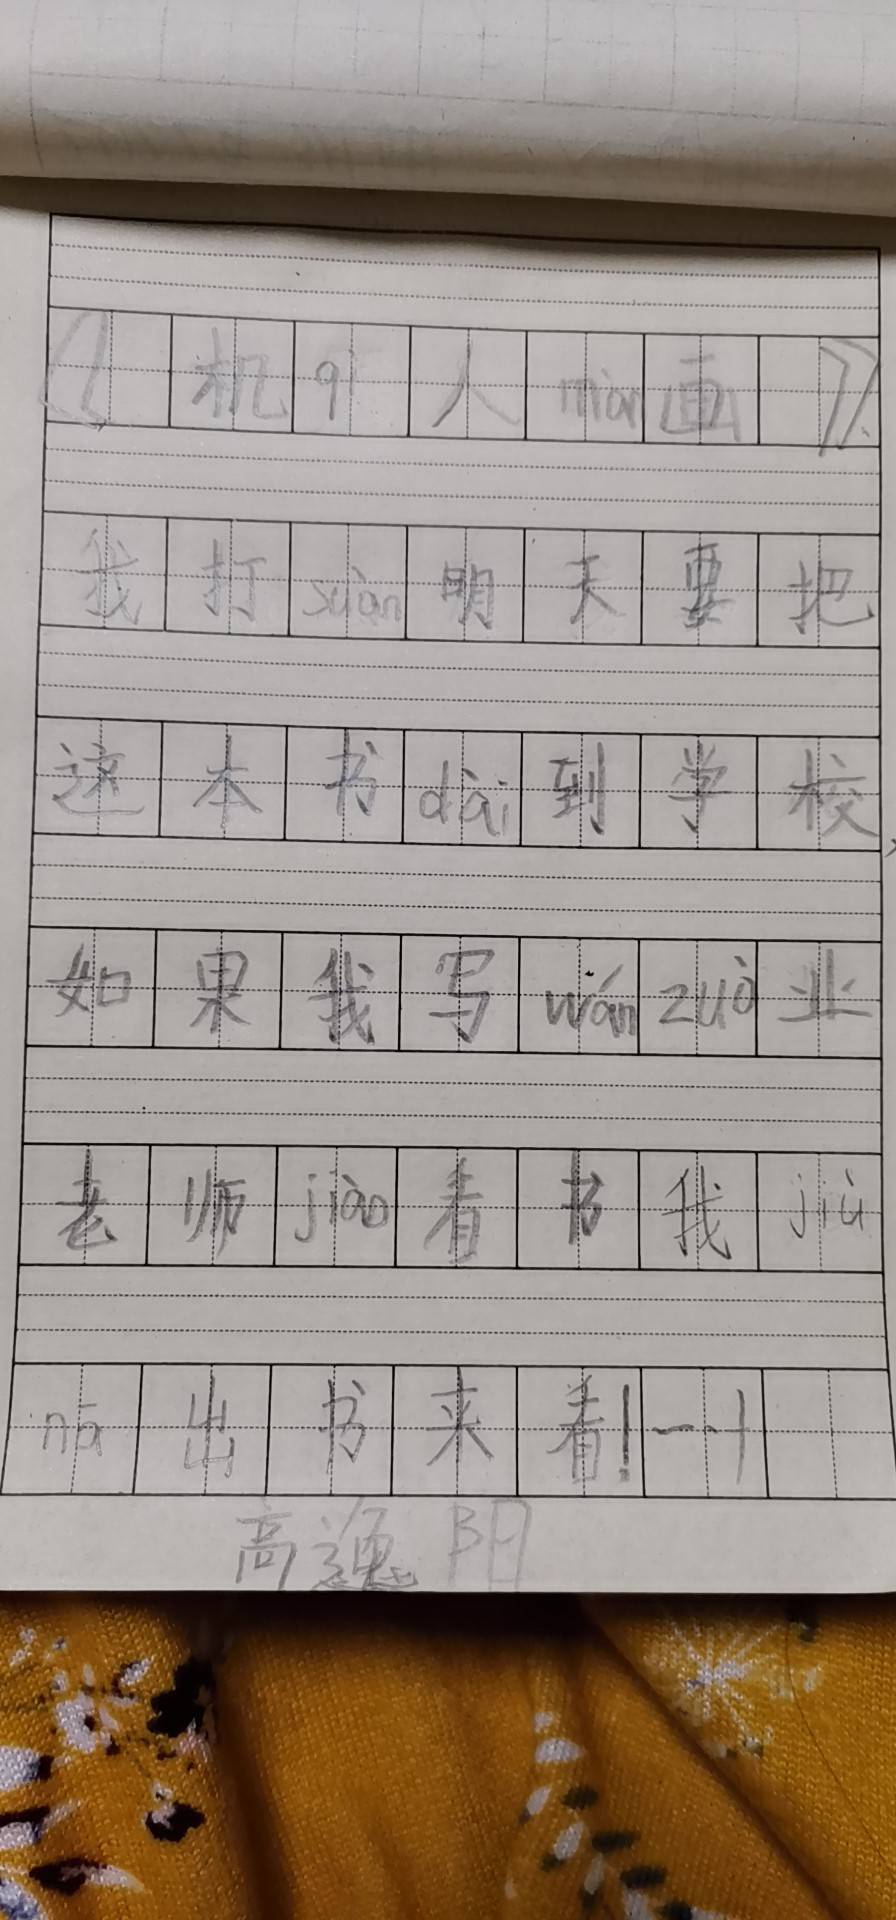 《机qì人miàn画》
我打suàn明天要把
这本书dài到学校，
如果我写wánzuò业
老师jiào看书我jiù
ná出书来看！
高逸阳